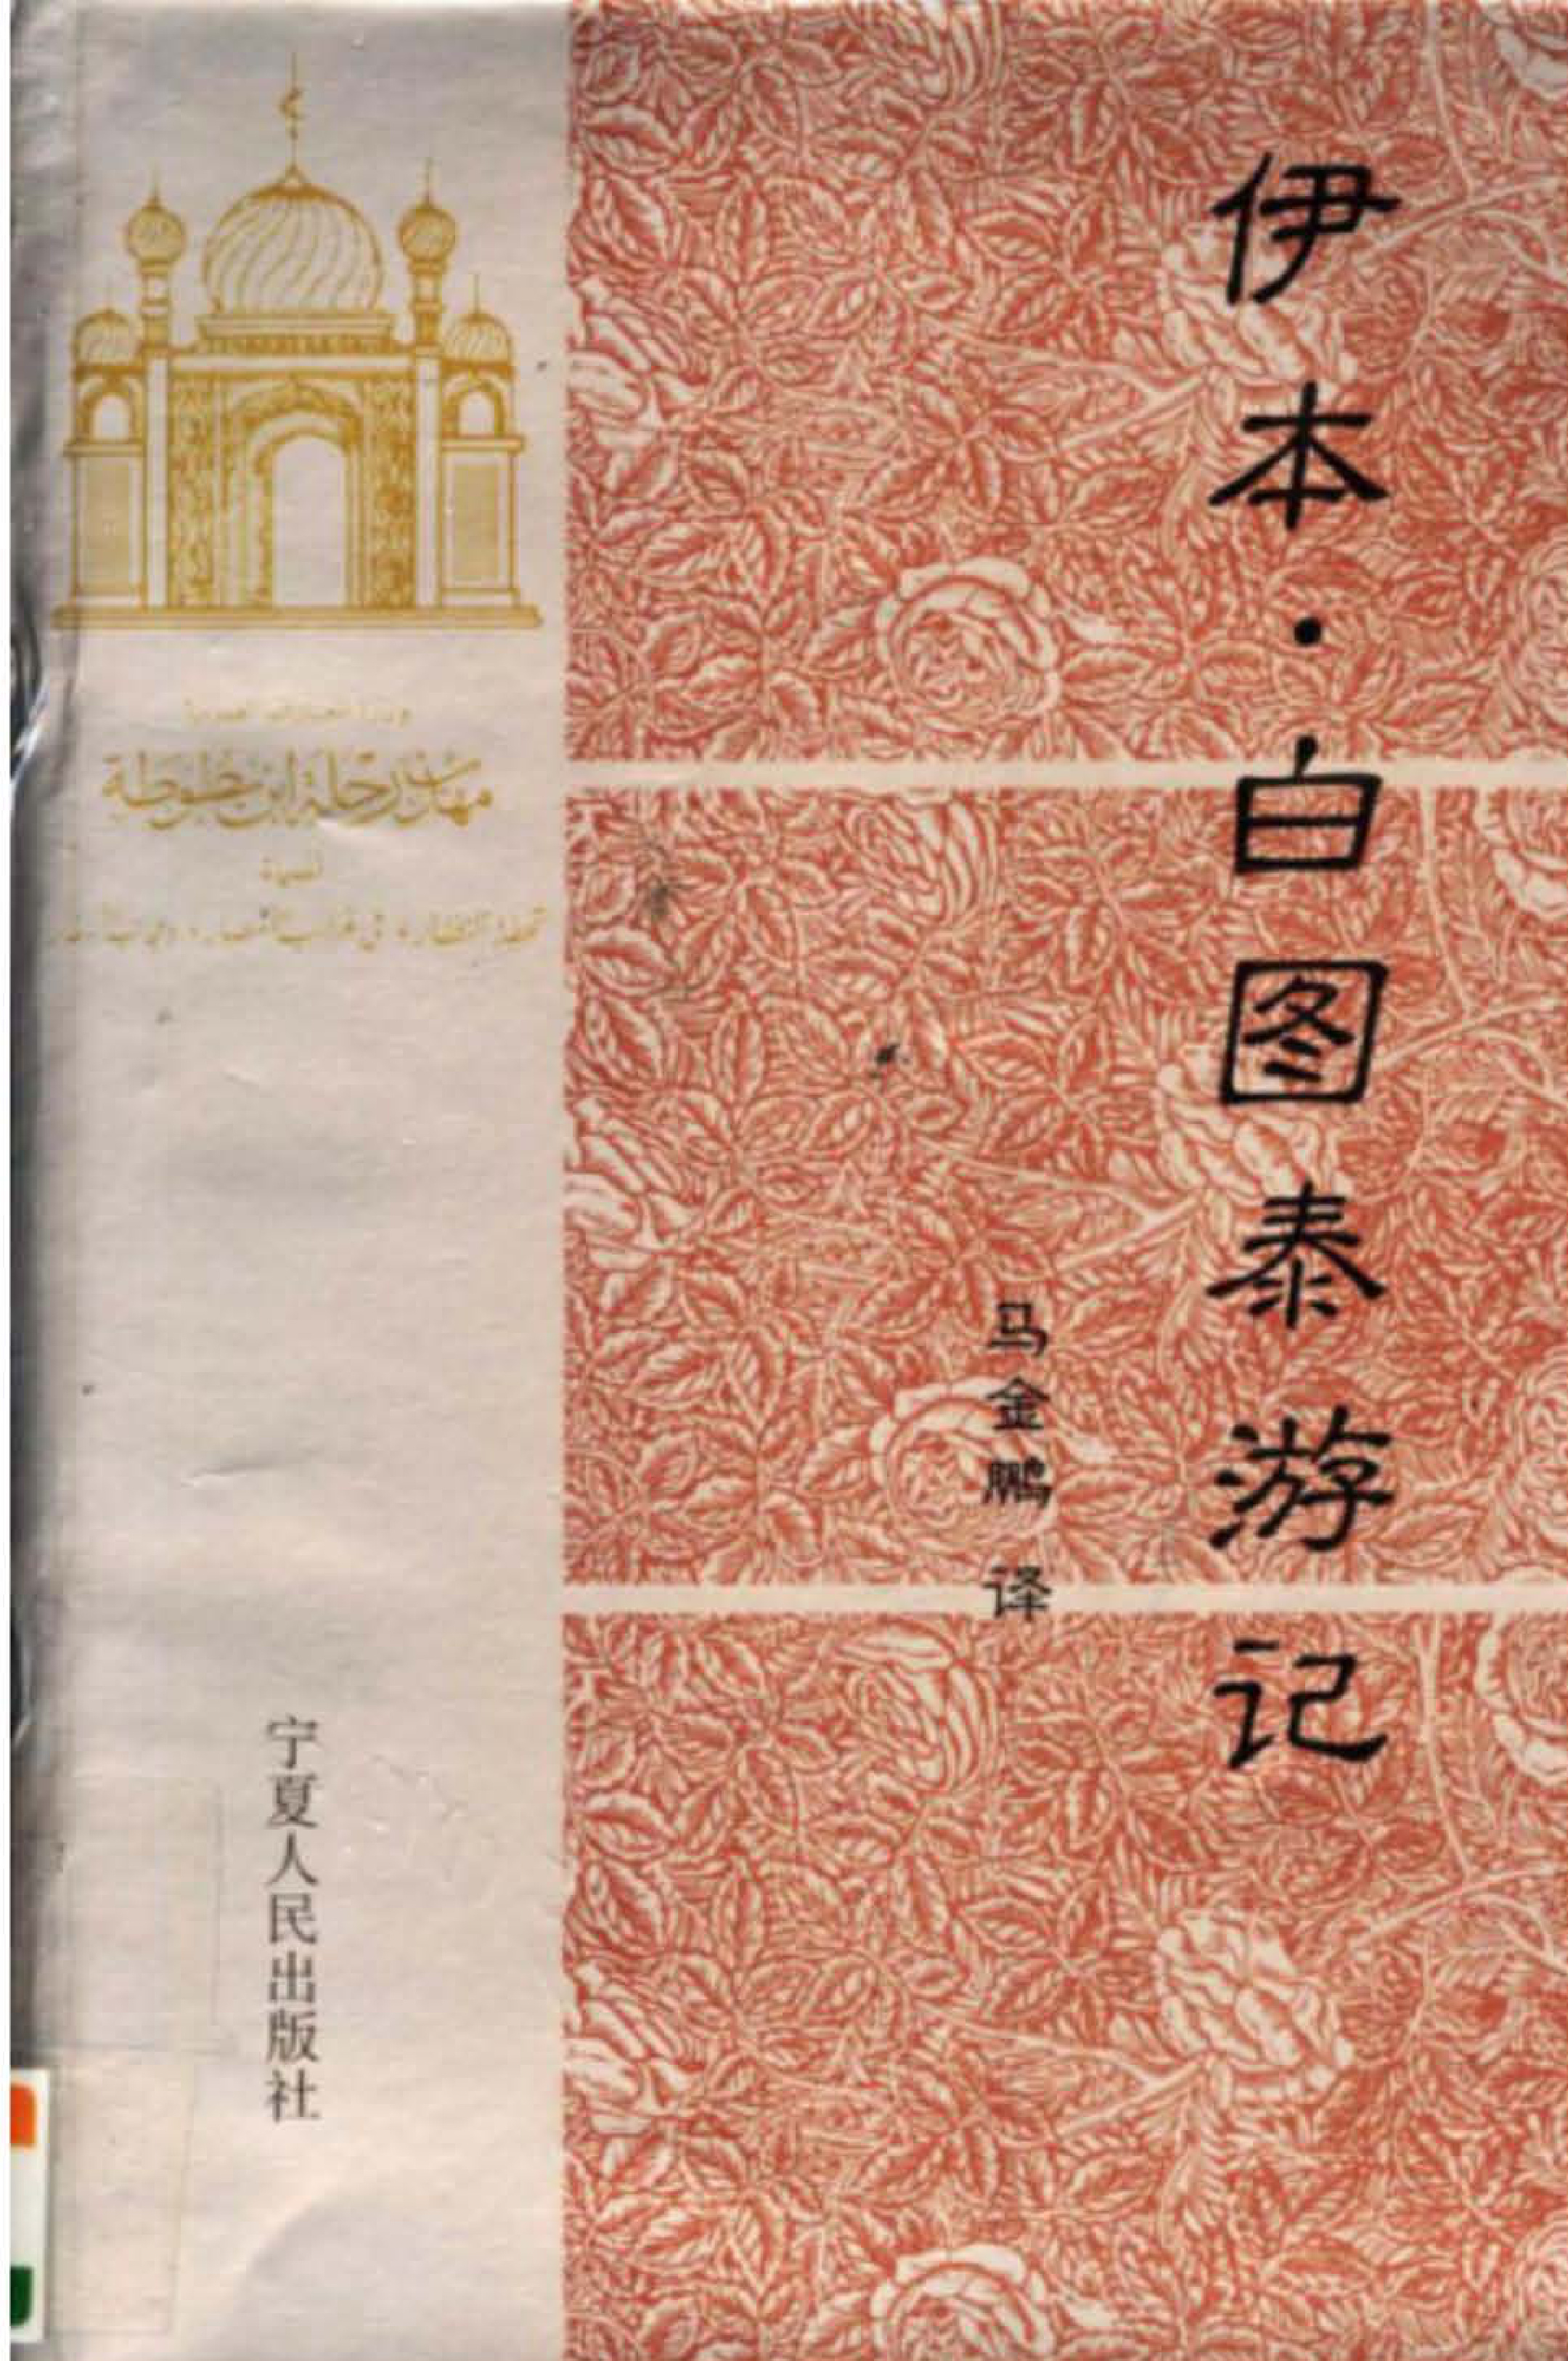 伊本·白图泰游记
马金鹏 译
وزارة المعارف العمومية
مهذب رحلة ابن بطوطة
المسماة
تحفة النظار في غرائب الأمصار وعجائب الأسفار
宁夏人民出版社